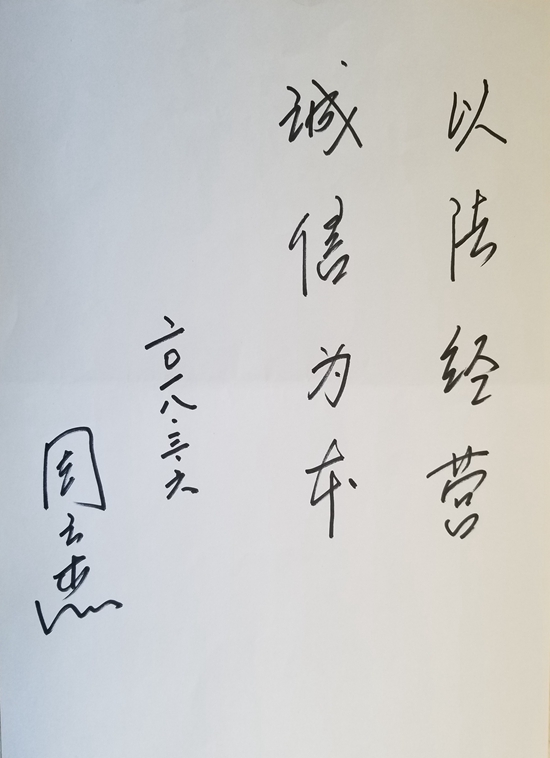 以法经营
诚信为本
二〇一八.三.六
周云杰